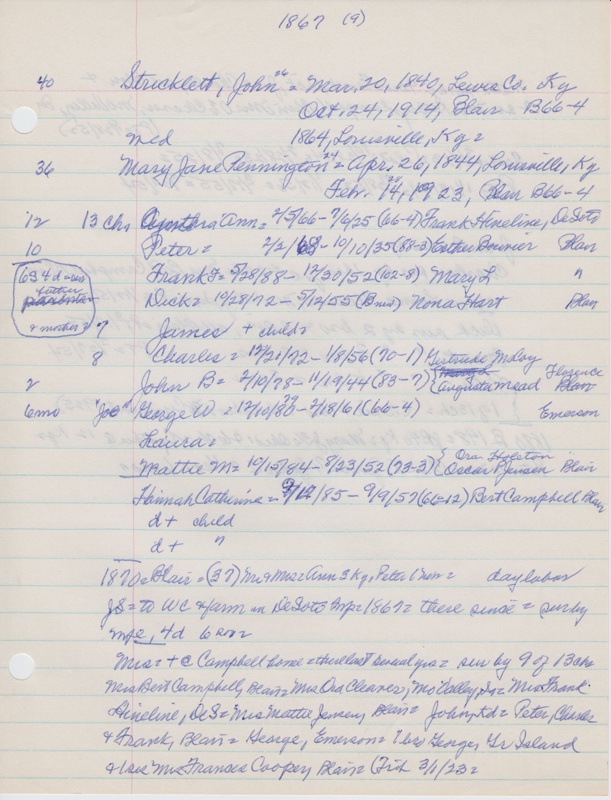 1867 (9)
40 Stricklett, John 26 = Mar. 20, 1840, Lewis Co. Ky
Oct. 24, 1914, Blair B66-4
Med 1864, Louisville, Ky =
36 Mary Jane Pennington 24 = Apr. 26, 1844, Louisville, Ky
Feb. 14, 1923, Blair B66-4
12 13 chs Ann = 2/5/66 - 7/6/25 (66-4) Frank Hineline, DeSoto
10 Peter = 2/2/68 - 10/10/35 (88-3) Esther Blair
Frank F = 5/28/88 - 12/30/52 (102-8) Mary L "
634d = sis
father
& mother =
Dick = 10/28/72 - 5/12/55 (B) Nona Hart Blair
7 James + child =
8 Charles = 12/21/72 - 1/8/56 (70-1) Gertrude
2 John B = 2/10/78 - 11/19/44 (83-7) { Augusta Mead Florence Blair
6mo "Joe" George W = 12/10/80 - 2/18/61 (66-4) Emerson
Laura =
Mattie M = 10/15/84 - 8/23/52 (73-3) { Ora Holston
Oscar P Jensen Blair
Hannah Catherine = 9/12/85 - 9/9/57 (66-12) Bert Campbell Blair
d + child
d + "
1870 = Blair = (37) Mr & Mrs = Ann 3 Ky, Peter 1 = day labor
JS = to WC & farm in DeSoto = 1867 = there since = sur by
4d 6 sons
Mrs = + @ Campbell home = there last several yrs = sur by 9 of 13 chs
Mrs Bert Campbell, Blair = Mrs Ora Cleaver, Mo Valley, Ia = Mrs Frank
Hineline, DeS = Mrs Mattie Jensen, Blair = John, = Peter, Charles
& Frank, Blair = George, Emerson = 1 bro George, Gr Island
& 1 sis Mrs Frances Cooper, Blair = (Trib 3/1/23 =